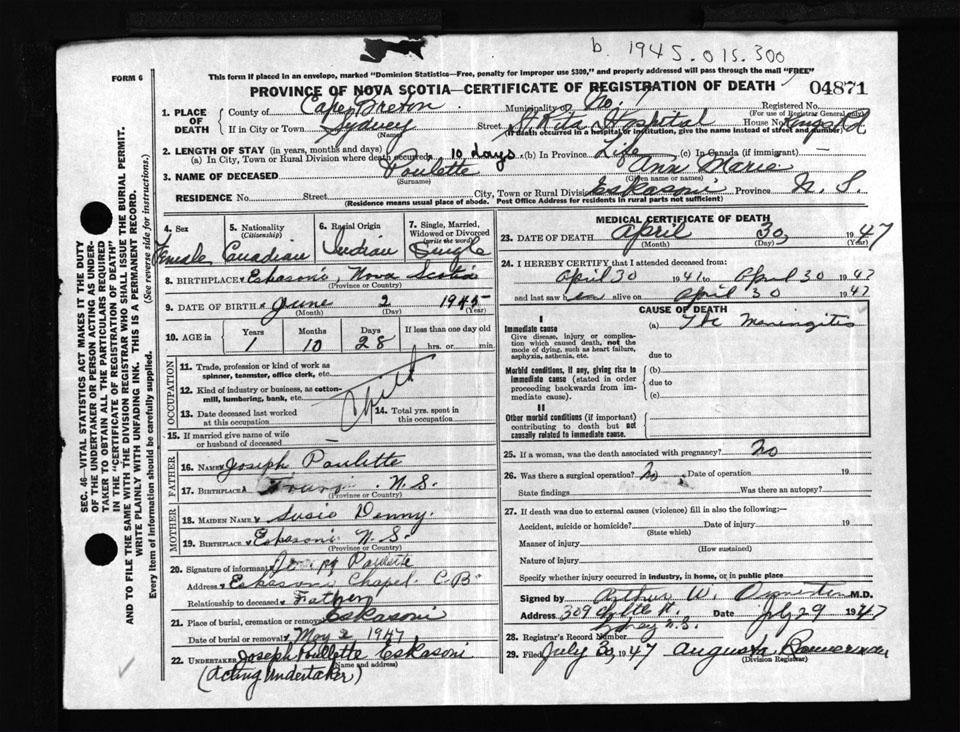 b. 1945.015.300
FORM 6
This form if placed in an envelope, marked "Dominion Statistics—Free, penalty for improper use $300," and properly addressed will pass through the mail "FREE"
PROVINCE OF NOVA SCOTIA—CERTIFICATE OF REGISTRATION OF DEATH
04871
1. PLACE OF DEATH
County of Cape Breton Municipality of No. 7 Registered No.
(For use of Registrar General only)
If in City or Town Sydney Street St Rita Hospital House No. Kings Rd
(Name) (If death occurred in a hospital or institution, give name instead of street and number)
2. LENGTH OF STAY (in years, months and days)
(a) In City, Town or Rural Division where death occurred 10 days (b) In Province Life (c) In Canada (if immigrant) —
3. NAME OF DECEASED Paulette Ann Marie
(Surname) (Given name or names)
RESIDENCE No. Street City, Town or Rural Division Eskasoni Province N. S.
(Residence means usual place of abode. Post Office Address for residents in rural parts not sufficient)
4. Sex Female
5. Nationality (Citizenship) Canadian
6. Racial Origin Indian
7. Single, Married, Widowed or Divorced (write the word) Single
8. BIRTHPLACE Eskasoni Nova Scotia
(Province or Country)
9. DATE OF BIRTH June 2 1945
(Month) (Day) (Year)
10. AGE in Years Months Days If less than one day old
1 10 28 hrs. or min.
OCCUPATION
11. Trade, profession or kind of work as spinner, teamster, office clerk, etc.
12. Kind of industry or business, as cotton-mill, lumbering, bank, etc.
13. Date deceased last worked at this occupation
14. Total yrs. spent in this occupation
15. If married give name of wife or husband of deceased —
FATHER
16. NAME Joseph Paulette
17. BIRTHPLACE N. S.
(Province or Country)
MOTHER
18. MAIDEN NAME Susie Denny
19. BIRTHPLACE Eskasoni N. S.
(Province or Country)
20. Signature of informant Joseph Paulette
Address Eskasoni Chapel C.B.
Relationship to deceased Father
21. Place of burial, cremation or removal Eskasoni
Date of burial or removal May 2 1947
22. UNDERTAKER Joseph Paullette Eskasoni
(Name and address)
(Acting Undertaker)
MEDICAL CERTIFICATE OF DEATH
23. DATE OF DEATH April 30, 1947
(Month) (Day) (Year)
24. I HEREBY CERTIFY that I attended deceased from:
April 30 1947 to April 30 1947
and last saw er alive on April 30 1947
CAUSE OF DEATH
I
Immediate cause
Give disease, injury or complication which caused death, not the mode of dying, such as heart failure, asphyxia, asthenia, etc.
(a) Tbc Meningitis
due to
Morbid conditions, if any, giving rise to immediate cause (stated in order proceeding backwards from immediate cause).
(b)
due to
(c)
II
Other morbid conditions (if important) contributing to death but not causally related to immediate cause.
25. If a woman, was the death associated with pregnancy? No
26. Was there a surgical operation? No Date of operation 19
State findings Was there an autopsy?
27. If death was due to external causes (violence) fill in also the following:—
Accident, suicide or homicide? Date of injury 19
(State which)
Manner of injury
(How sustained)
Nature of injury
Specify whether injury occurred in industry, in home, or in public place
Signed by Arthur W. Ormiston M.D.
Address 309 Date July 29 1947
Sydney N.S.
28. Registrar's Record Number
29. Filed July 30 1947 Augusta
(Division Registrar)
SEC. 46—VITAL STATISTICS ACT MAKES IT THE DUTY OF THE UNDERTAKER OR PERSON ACTING AS UNDERTAKER TO OBTAIN ALL THE PARTICULARS REQUIRED IN THE "CERTIFICATE OF REGISTRATION OF DEATH" AND TO FILE THE SAME WITH THE DIVISION REGISTRAR WHO SHALL ISSUE THE BURIAL PERMIT.
WRITE PLAINLY WITH UNFADING INK. THIS IS A PERMANENT RECORD.
Every item of information should be carefully supplied. (See reverse side for instructions.)